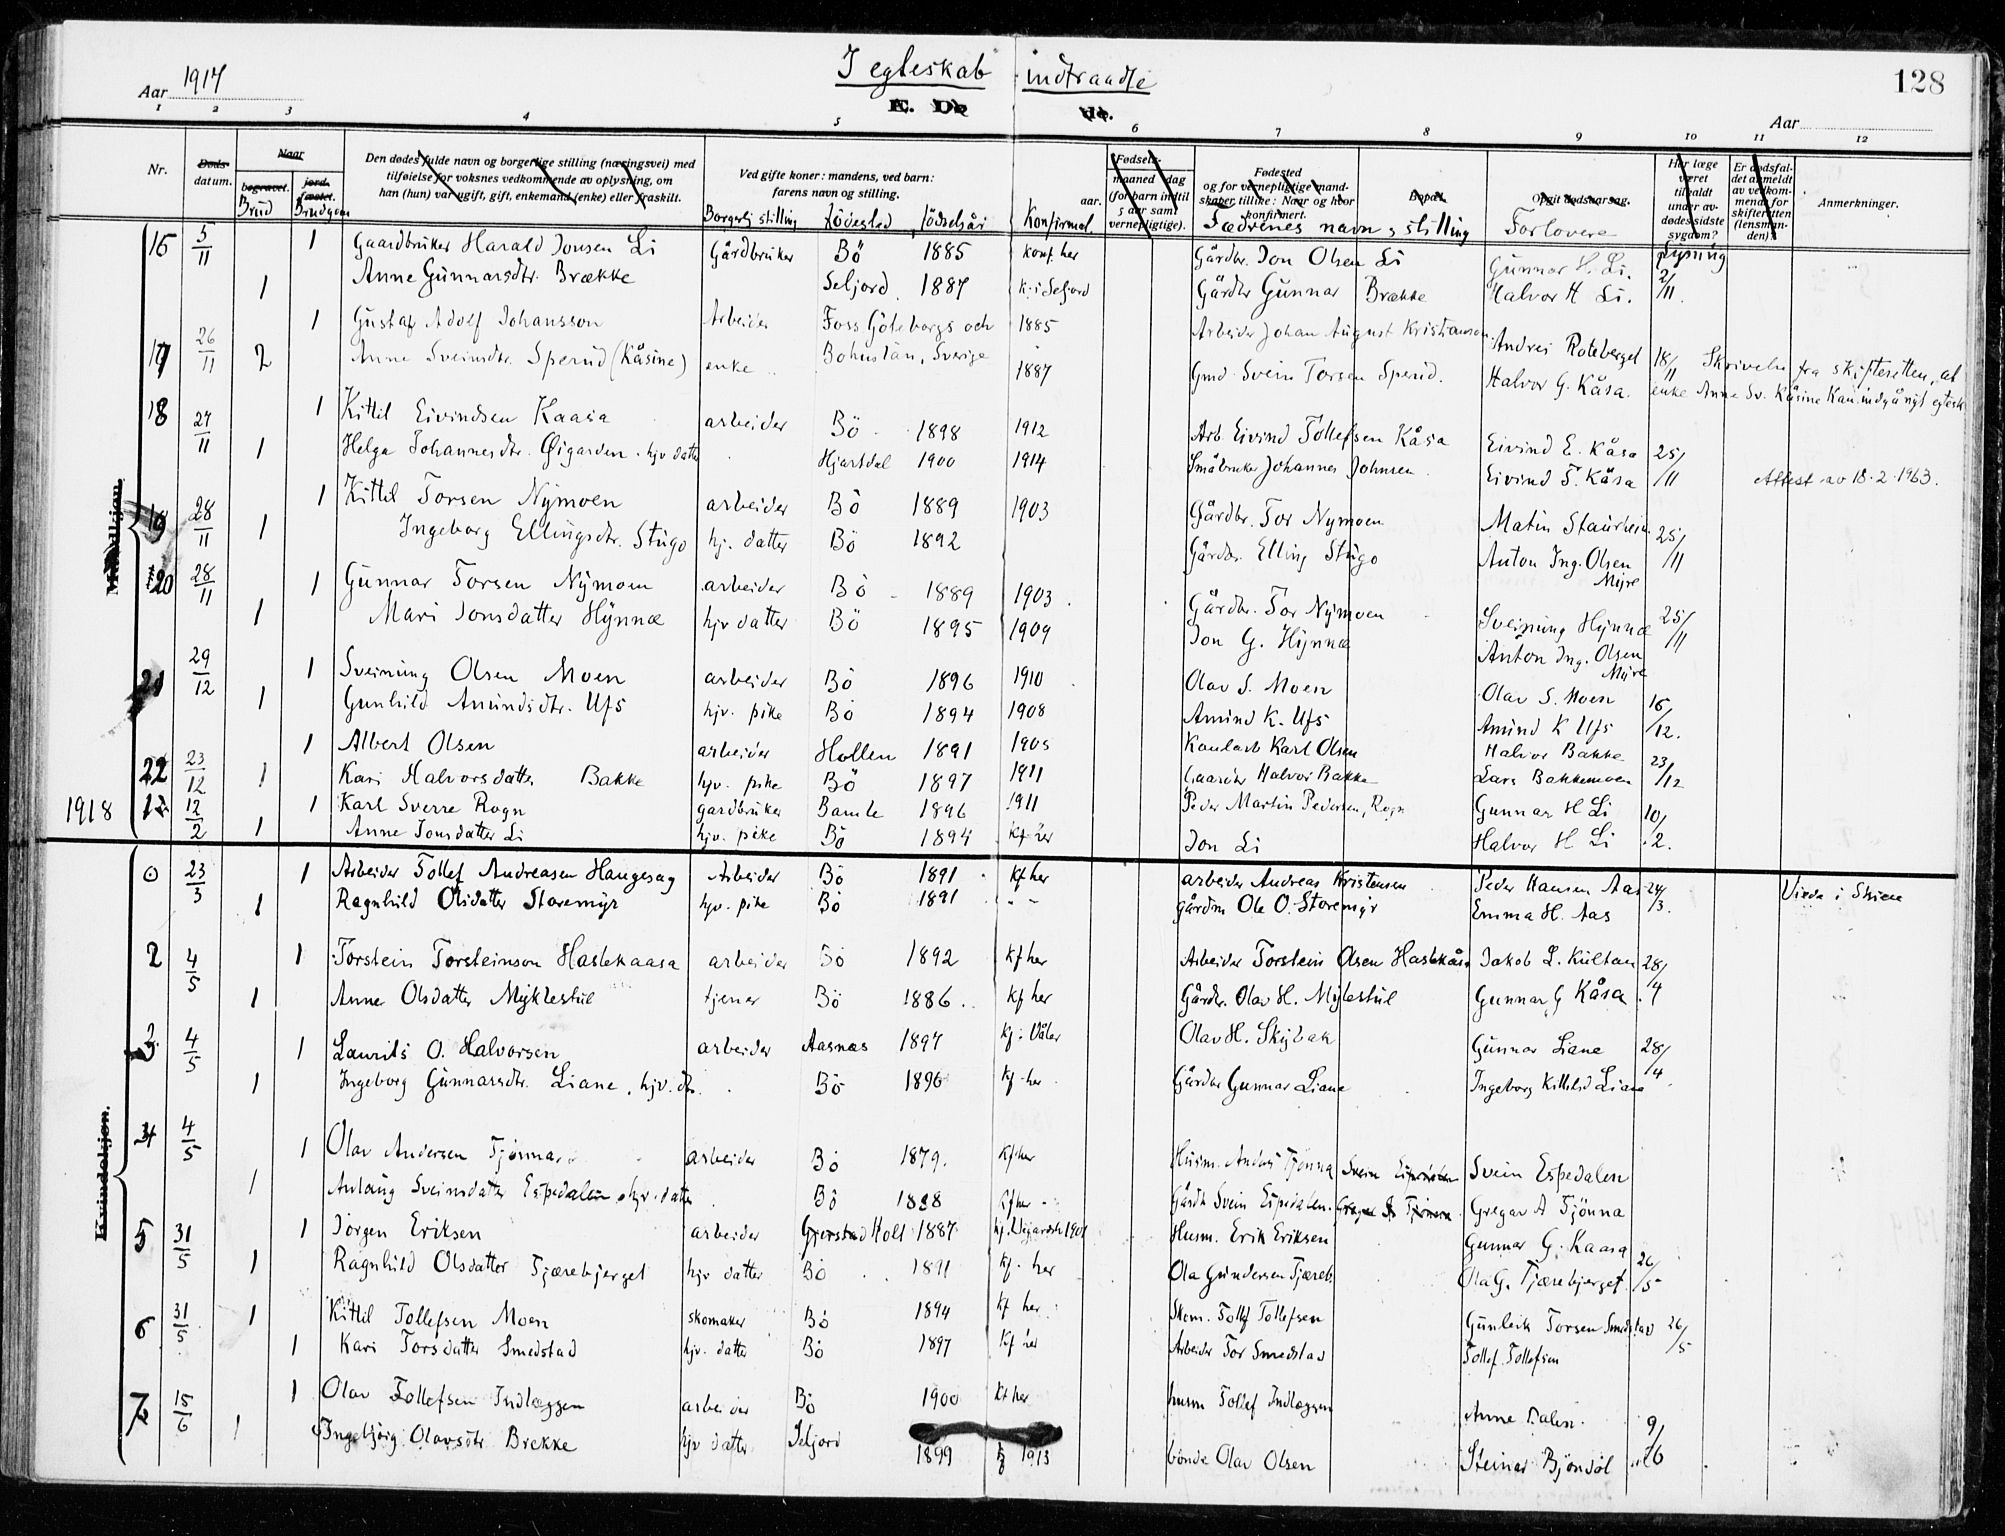 I egteskab indtraadte
Aar 1917
E. De
128
Aar
1 2 3 4 5 6 7 8 9 10 11 12
Nr.
Døds-datum.
Naar
begravet.
jord-fæstet.
Brud
Brudgom
Den dødes fulde navn og borgerlige stilling (næringsvei) med tilføielse for voksnes vedkommende av oplysning, om han (hun) var ugift, gift, enkemand (enke) eller fraskilt.
Ved gifte koner: mandens, ved barn: farens navn og stilling.
Borgerlig stilling Födested födselsår Konfirmat.
Fødsels-
maaned dag
aar.
(for barn indtil 5 aar samt vernepligtige).
Fødested
og for vernepligtige mandskaper tillike: Naar og hvor konfirmert.
Fædrenes navn, stilling
Bopæl.
Opgit dødsaarsag.
Forlovere
Har læge været tilkaldt under av-dødes sidste sygdom?
Lysning
Er dødsfaldet anmeldt av vedkommende for skifteretten (lensmanden)?
Anmerkninger.
Mandkjøn.
16 5/11 1 Gaardbruker Harald Jonsen Li Gårdbruker Bö 1885 Konf. her Gårdbr. Jon Olsen Li Gunnar H. Li. 2/11.
1 Anne Gunnarsdtr. Brække Seljord 1887 K. i Seljord Gårdbr Gunnar Brække Halvor H Li.
17 26/11 1 Gustaf Adolf Johansson Arbeider Foss Göteborgs och 1885 Arbeider Johan August Kristianson Andrei Roteberget 18/11 Skrivelse fra skifteretten, at
2 Anne Sveinsdtr. Sperud (Kåsine) enke Bohuslän, Sverige 1887 Gmd. Svein Torsen Sperud. Halvor G. Kåsa. enke Anne Sv. Kåsine kan indgå nyt egtesk.
18 27/11 1 Kittil Eivindsen Kaasa arbeider Bö 1898 1912 Arb. Eivind Tollefsen Kåsa Eivind E. Kåsa 25/11
1 Helga Johannesdtr. Øigarden. hjv datter Hjartdal 1900 1914 Småbruker Johannes Johnsen Eivind T. Kåsa Attest av 18.2.1963.
19 28/11 1 Kittil Torsen Nymoen arbeider Bö 1889 1903 Gårdbr. Tor Nymoen Matin Staurheim 25/11
1 Ingeborg Ellingsdtr. Stugo hj. datter Bö 1892 Gårdbr. Elling Stugo Anton Ing. Olsen Myre
20 28/11 1 Gunnar Torsen Nymoen arbeider Bö 1889 1903. Gårdbr. Tor Nymoen Sveinung Hynnæ 25/11
1 Mari Jonsdatter Hynnæ hjv datter Bö 1895 1909 Jon G. Hynnæ Anton Ing. Olsen Myre
21 29/12 1 Sveinung Olsen Moen arbeider Bö 1896 1910 Olav S. Moen Olav S. Moen 16/12.
1 Gunhild Amundsdtr. Ufs hjv. pike Bö 1894 1908 Amund K. Ufs Amund K Ufs
22 23/12 1 Albert Olsen arbeider Hollen 1891 1905 Karl Olsen Halvor Bakke 23/12
1 Kari Halvorsdatter Bakke hjv. pike Bö 1897 1911 Halvor Bakke Lars Bakkemoen
1918 12/2 1 Karl Sverre Rogn gardbruker Bamle 1896 1911 Peder Martin Pedersen, Rogn Gunnar H Li 10/2.
1 Anne Jonsdatter Li hjv. pike Bö 1894 Jon Li Halvor H Li
Kvindekjøn.
23/3 1 Arbeider Tollef Andreasen Haugesag Arbeider Bö 1891 Kf her arbeider Andreas Kristensen Peder Hansen Aas 24/3. Viede i Skien
1 Ragnhild Olsdatter Storemyr hjv. pike Bö 1891 - - gårdm Ole O. Storemyr Emma H. Aas
2 4/5 1 Torstein Torsteinson Haslekaasa arbeider Bö 1892 Kf her Arbeider Torstein Olsen Haslekåsa Jakob L. Kultan 28/4
1 Anne Olsdatter Myklestul tjener Bö 1886. Kf her Gårdbr. Olav H. Mylestul Gunnar G Kåsa
3 4/5 1 Laurits O. Halvorsen arbeider Aasnes 1897 Kf. i Våler Olav H. Skybak Gunnar Liane 28/4.
1 Ingeborg Gunnarsdtr. Liane. hjv. dtr. Bö 1896 Kf. her Gårdbr Gunnar Liane Ingeborg Liane
4 4/5 1 Olav Andersen Tjönna arbeider Bö 1879. Kf her Husm. Anders Tjönna Svein Espedalen
1 Anlaug Sveinsdatter Espedalen hjv. datter Bö 1888 Kf her Gårdb Svein Espedalen. Gregar A Tjönna
5 31/5 1 Jörgen Eriksen arbeider Gjerstad Holt 1887 1901 Husm. Erik Eriksen Gunnar G. Kaasa 26/5
1 Ragnhild Olsdatter Tjærebjerget hjv datter Bö 1891 Kf. her Ola Gundersen Tjæreb. Ola G. Tjærebjerget
6 31/5 1 Kittil Tollefsen Moen skomaker Bö 1894 Kf her Skom. Tollef Tollefsen Gunleik Torsen Smedstad 26/5
1 Kari Torsdatter Smedstad hjv. datter Bö 1897 Kf her Arbeider Tor Smedstad Tollef Tollefsen
7 15/6 1 Olav Tollefsen Indlæggen arbeider Bö 1900 Kf her husm Tollef Indlæggen Anne Dalen. 9/6
1 Ingebjörg Olavsdtr Brekke hjv datter Seljord 1899 Kf 1913 bonde Olav Olsen Steinar Bjöndöl